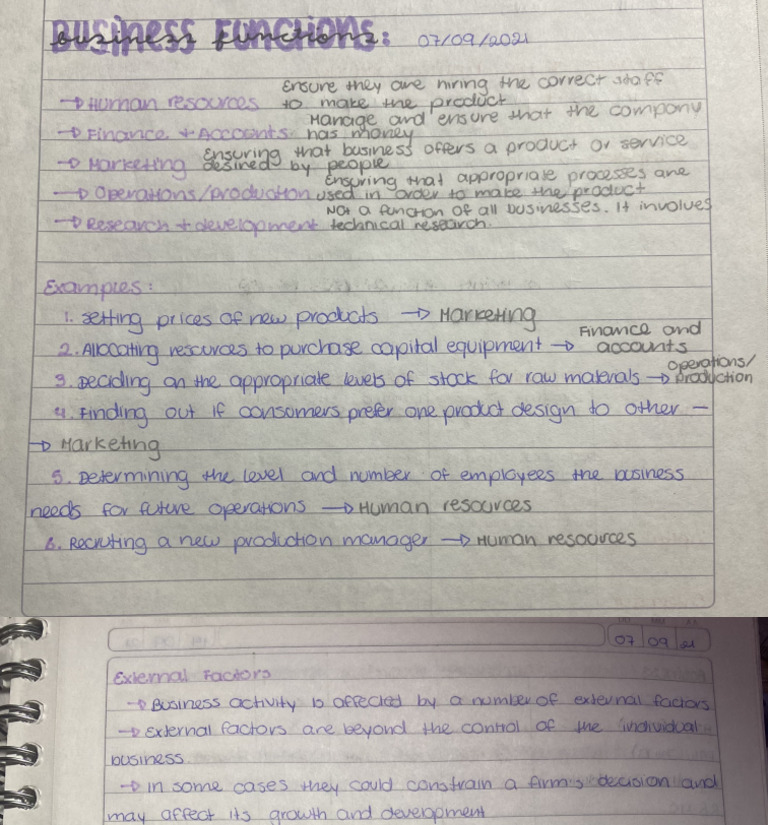 Business Functions: 07/09/2021
Ensure they are hiring the correct staff
→ Human resources to make the product
Manage and ensure that the company
→ Finance + Accounts has money
Ensuring that business offers a product or service
→ Marketing desired by people
Ensuring that appropriate processes are
→ Operations/production used in order to make the product
Not a function of all businesses. It involves
→ Research + development technical research.
Examples:
1. Setting prices of new products → Marketing
Finance and
2. Allocating resources to purchase capital equipment → accounts
operations/
3. Deciding on the appropriate levels of stock for raw materals → production
4. Finding out if consomers prefer one product design to other –
→ Marketing
5. Determining the level and number of employees the business
needs for future operations → Human resources
6. Recruting a new production manager → Human resources
07 09 21
External Factors
→ Business activity is affected by a number of external factors
→ External factors are beyond the control of the individual
business
→ In some cases they could constrain a firm's decision and
may affect its growth and development